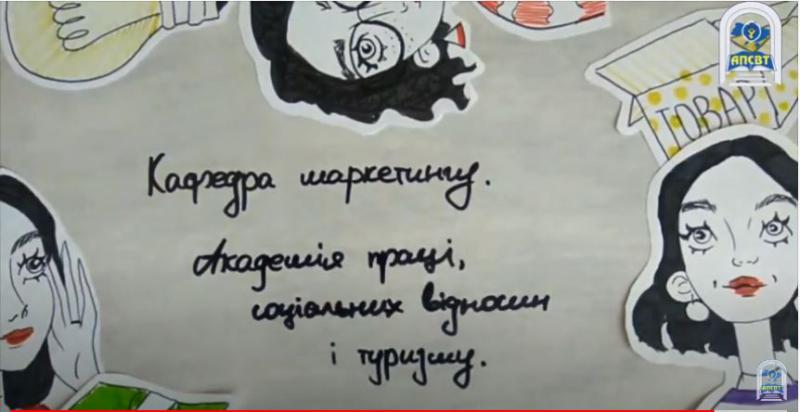 АПСВТ
ТОВАРІ
Кафедра маркетингу.
Академія праці,
соціальних відносин
і туризму.
АПСВТ